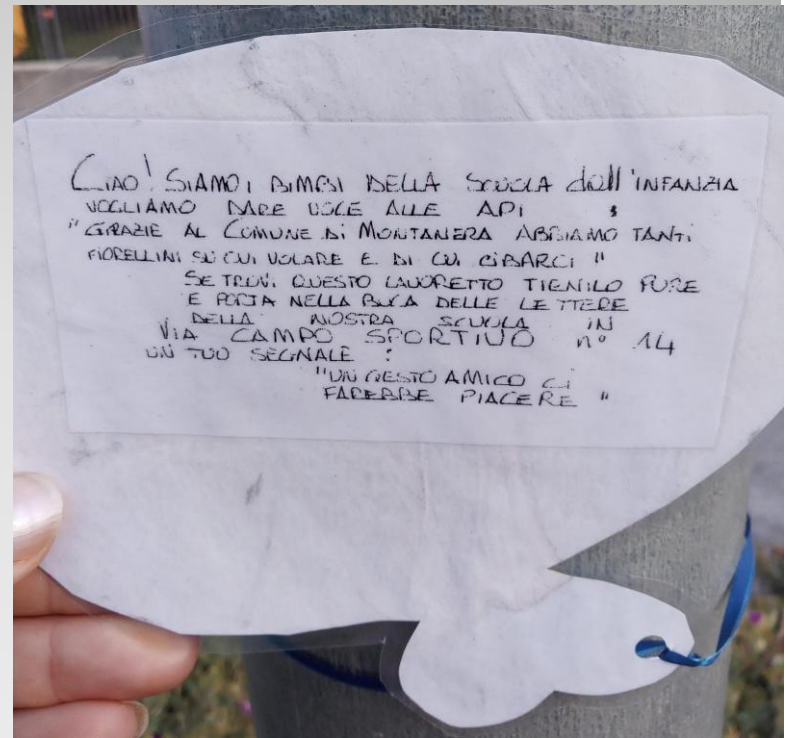 CIAO! SIAMO I BIMBI DELLA SCUOLA dell'INFANZIA
VOGLIAMO DARE VOCE ALLE API :
"GRAZIE AL COMUNE DI MONTANERA ABBIAMO TANTI
FIORELLINI SU CUI VOLARE E DI CUI CIBARCI"
SE TROVI QUESTO LAVORETTO TIENILO PURE
E PORTA NELLA BUCA DELLE LETTERE
DELLA NOSTRA SCUOLA IN
VIA CAMPO SPORTIVO n° 14
UN TUO SEGNALE :
"UN GESTO AMICO CI
FAREBBE PIACERE"